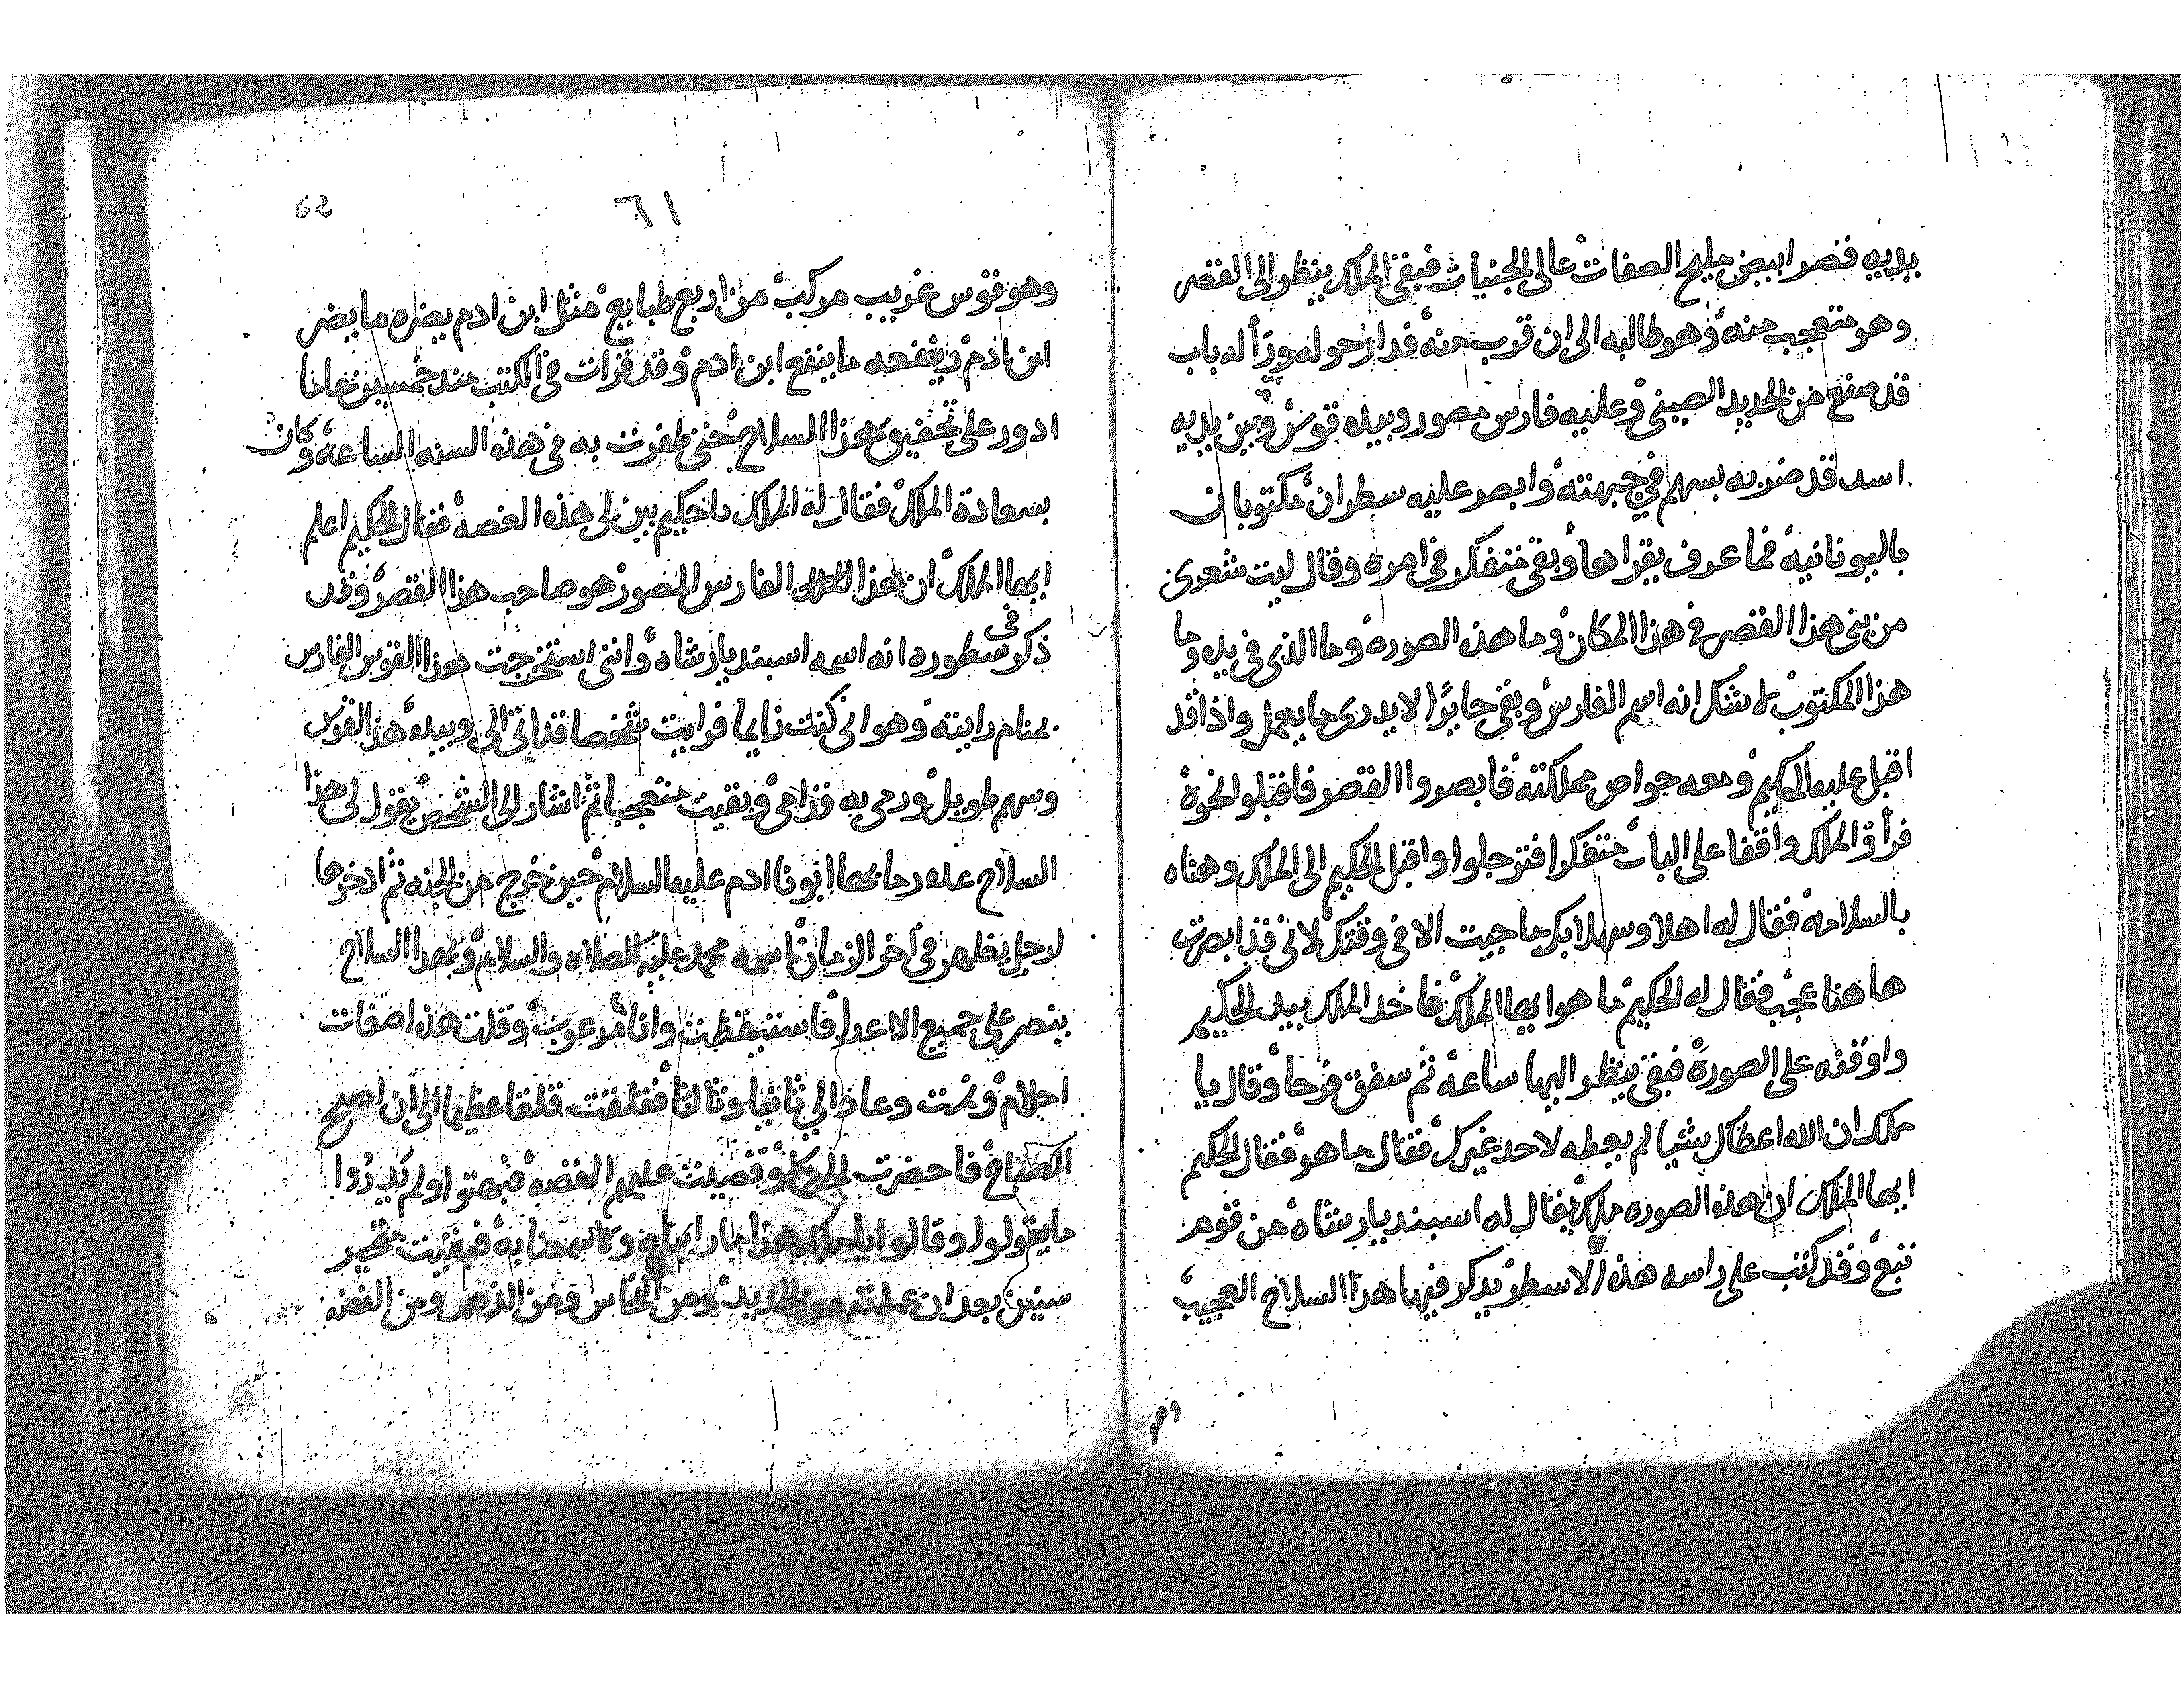 يديه قصر ابيض مليح الصفات عالى الجنبات فبقى الملك ينظر الى القصر
وهو متعجب منه وهو طالبه الى ان قرب منه فدار حوله ورأ له باب
قد صنع من الحديد الصينى وعليه فارس مصور وبيده قوس وبين يديه
اسد قد ضربه بسهم في جبهته وابصر عليه سطران مكتوبان
باليونانية فما عرف يقراها وبقى متفكر فى امره وقال ليت شعرى
من بنى هذا القصر فى هذا المكان وما هذه الصوره وما الذى فى يده وما
هذا المكتوب لا شك انه اسم الفارس وبقى حايرا لا يدرى ما يعمل واذا قد
اقبل عليه الحكيم ومعه خواص مملكته فابصروا القصر فاقبلوا نحوه
فرأو الملك واقفا على الباب متفكرا فترجلوا واقبل الحكيم الى الملك وهناه
بالسلامة فقال له اهلا وسهلا بك ما جيت الا فى وقتك لانى قد ابصرت
هاهنا عجب فقال له الحكيم ما هو ايها الملك فاخد الملك بيد الحكيم
واوقفه على الصورة فبقى ينظر اليها ساعة ثم سفق فرحا وقال يا
ملك ان الله اعطاك شيا لم يعطه لاحد غيرك فقال ما هو فقال الحكيم
ايها الملك ان هذه الصوره ملك يقال له اسبنديار شاه من قوم
تبع وقد كتب على راسه هذه الاسطر يدكر فيها هدا السلاح العجيب
وهو
62
٦١
وهو قوس غريب مركب من اربع طبايع مثل ابن ادم يضره ما يضر
ابن ادم وينفعه ما ينفع ابن ادم وقد قرات فى الكتب مند خمسين عاما
ادور على تحقيق هذا السلاح حتى ظفرت به فى هذه السنه الساعة وكان
بسعادة الملك فقال له الملك يا حكيم بين لى هذه القصة فقال الحكيم اعلم
ايها الملك ان هذا الفارس المصور هو صاحب هذا القصر وقد
ذكر فى سطوره انه اسمه اسبنديار شاه واننى استخرجت هذا القوس الفارس
بمنام رايته وهو انى كنت نايما فرايت شخصا قد اتى الى وبيده هذا القوس
وسهم طويل ورمى به قدامى وبقيت متعجبا ثم اشار الى الشخص يقول لى هذا
السلاح عده رما بها ابونا ادم عليه السلام حين خرج من الجنه ثم ادخرها
لاجل يظهر فى آخر الزمان اسمه محمد عليه الصلاه والسلام وبهدا السلاح
ينصر على جميع الاعدا فاستيقظت وانا مرعوب وقلت هذه اضغات
احلام ونمت وعاد الي ثانيا وثالثا فقلقت قلقا عظيما الى ان اصبح
الصباح فاحضرت الحكما وقصيت عليهم القصه فبهتوا ولم يدروا
ما يقولوا وقالوا يا ملك هذا ما رايناه ولا سمعنا به فبقيت متحير
سنين بعد ان عملته من الحديد ومن النحاس ومن الذهب ومن الفضه